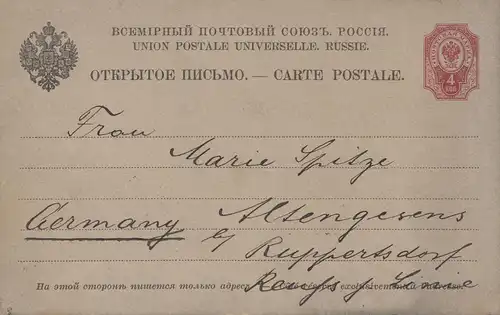 ВСЕМІРНЫЙ ПОЧТОВЫЙ СОЮЗЪ. РОССІЯ.
UNION POSTALE UNIVERSELLE. RUSSIE.
ОТКРЫТОЕ ПИСЬМО. — CARTE POSTALE.
4
КОП
Frau
Marie Spitze
Germany Altengesens
b/ Ruppertsdorf
Reuss j. Linie
На этой сторонѣ пишется только адресъ